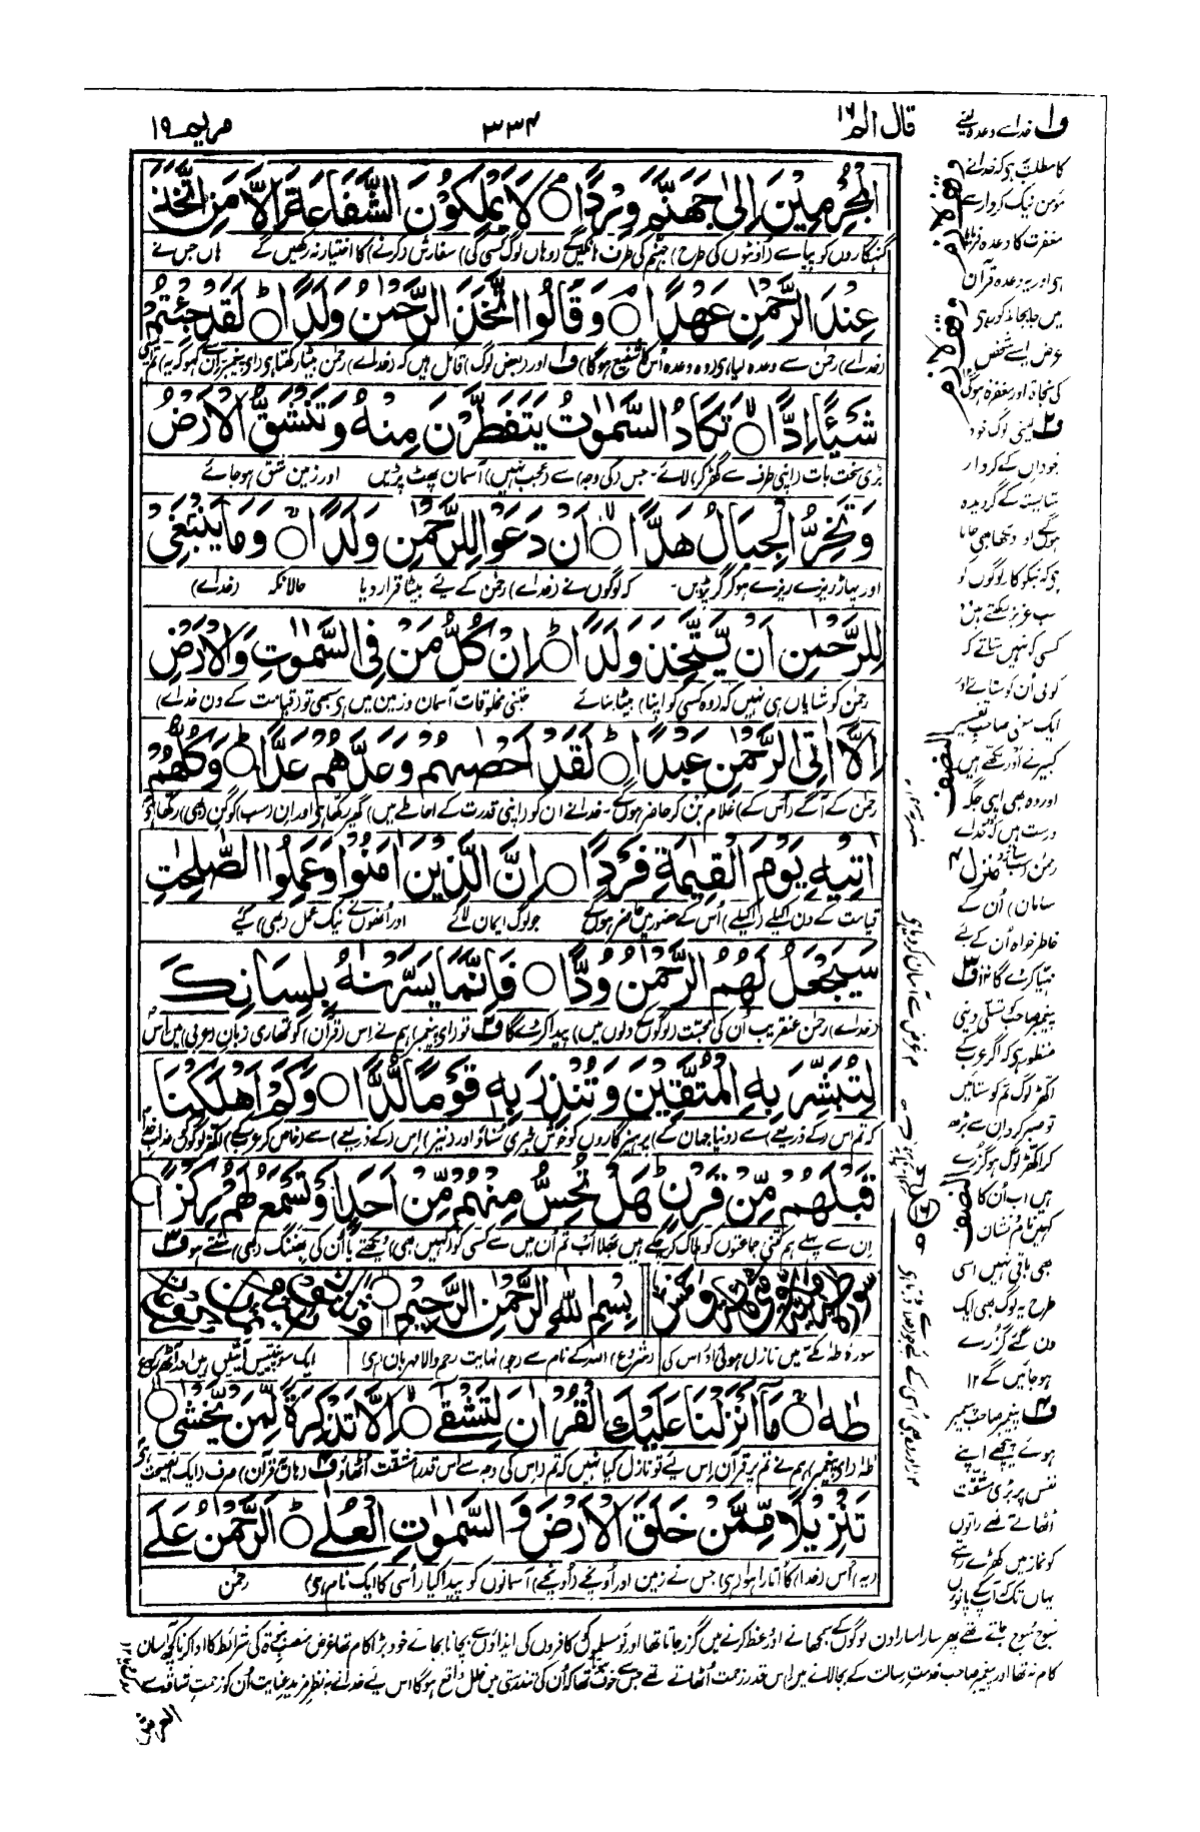 قال الم ١٦
٣٣٤
مريم ١٩
الْمُجْرِمِيْنَ اِلٰى جَهَنَّمَ وِرْدًا ۘ لَا يَمْلِكُوْنَ الشَّفَاعَةَ اِلَّا مَنِ اتَّخَذَ
گنہگاروں کو پیاسے (اونٹوں کی طرح) جہنم کی طرف ہانکیں گے (وہاں لوگ کسی کی) سفارش (کرنے) کا اختیار نہ رکھیں گے ہاں جس نے
عِنْدَ الرَّحْمٰنِ عَهْدًا ۘ وَقَالُوا اتَّخَذَ الرَّحْمٰنُ وَلَدًا ؕ لَقَدْ جِئْتُمْ
(خدائے) رحمن سے وعدہ لیا ہی (وہ وعدہ اُس کا شفیع ہوگا) ف۱ اور (بعض لوگ) قائل ہیں کہ (خدائے) رحمن بیٹا رکھتا ہی (اے پیغمبر ان سے کہو کہ یہ) تم ایسی
شَيْئًا اِدًّا ۙ تَكَادُ السَّمٰوٰتُ يَتَفَطَّرْنَ مِنْهُ وَتَنْشَقُّ الْاَرْضُ
بڑی سخت بات (اپنی طرف سے گھڑ کر) لائے۔ جس (کی وجہ) سے (عجب نہیں) آسمان پھٹ پڑیں اور زمین شق ہو جائے
وَتَخِرُّ الْجِبَالُ هَدًّا ۙ اَنْ دَعَوْا لِلرَّحْمٰنِ وَلَدًا ۚ وَمَا يَنْبَغِيْ
اور پہاڑ ریزے ریزے ہو کر گر پڑیں۔ کہ لوگوں نے (خدائے) رحمن کے لیے بیٹا قرار دیا حالانکہ (خدائے)
لِلرَّحْمٰنِ اَنْ يَّتَّخِذَ وَلَدًا ؕ اِنْ كُلُّ مَنْ فِي السَّمٰوٰتِ وَالْاَرْضِ
رحمن کو شایاں ہی نہیں کہ (وہ کسی کو اپنا) بیٹا بنائے جتنی مخلوقات آسمان و زمین میں ہی سبھی تو (قیامت کے دن خدائے)
اِلَّا اٰتِي الرَّحْمٰنِ عَبْدًا ؕ لَقَدْ اَحْصٰىهُمْ وَعَدَّهُمْ عَدًّا ؕ وَكُلُّهُمْ
رحمن کے آگے (اُس کے) غلام بن کر حاضر ہوں گے۔ خدا نے ان کو (اپنی قدرت کے احاطے میں) گھیر رکھا ہی اور ان (سب) کو گن (بھی) رکھا ہی
اٰتِيْهِ يَوْمَ الْقِيٰمَةِ فَرْدًا ۘ اِنَّ الَّذِيْنَ اٰمَنُوْا وَعَمِلُوا الصّٰلِحٰتِ
قیامت کے دن اکیلے (اکیلے) اُس کے حضور میں حاضر ہوں گے جو لوگ ایمان لائے اور اُنھوں نے نیک عمل (بھی) کیے
سَيَجْعَلُ لَهُمُ الرَّحْمٰنُ وُدًّا ۘ فَاِنَّمَا يَسَّرْنٰهُ بِلِسَانِكَ
(خدائے) رحمن عنقریب اُن کی محبت (لوگوں کے دلوں میں) پیدا کرے گا ف۲ تو (اے پیغمبر) ہم نے اِس (قرآن) کو تمھاری زبان (عربی) میں اس
لِتُبَشِّرَ بِهِ الْمُتَّقِيْنَ وَتُنْذِرَ بِهٖ قَوْمًا لُّدًّا ۘ وَكَمْ اَهْلَكْنَا
کہ تم اس (کے ذریعے) سے (دنیا جہان کے) پرہیزگاروں کو خوش خبری سناؤ اور (نیز) اِس (کے ذریعے) سے (خاص کر عرب کے) اکھڑ لوگوں کو عذاب
قَبْلَهُمْ مِّنْ قَرْنٍ ؕ هَلْ تُحِسُّ مِنْهُمْ مِّنْ اَحَدٍ اَوْ تَسْمَعُ لَهُمْ رِكْزًا
اِن سے پہلے ہم کتنی جماعتوں کو ہلاک کر چکے ہیں بھلا اب تم اُن میں سے کسی کو (کہیں بھی) دیکھتے یا اُن کی بھنک (بھی) سنتے ہو ف۳
بِسْمِ اللّٰهِ الرَّحْمٰنِ الرَّحِيْمِ
سورۂ طٰہٰ مکے میں نازل ہوئی اور اس کی
(شروع) اللہ کے نام سے (جو) نہایت رحم والا مہربان (ہی)
ایک سو پینتیس آیتیں ہیں اور آٹھ رکوع
طٰهٰ ۚ مَآ اَنْزَلْنَا عَلَيْكَ الْقُرْاٰنَ لِتَشْقٰٓى ۙ اِلَّا تَذْكِرَةً لِّمَنْ يَّخْشٰى
طٰہٰ (اے پیغمبر) ہم نے تم پر قرآن اِس لیے تو نازل کیا نہیں کہ تم (اس کی وجہ سے اس قدر) مشقت اُٹھاؤ ف۴ (ہاں یہ قرآن) صرف (ایک) نصیحت
تَنْزِيْلًا مِّمَّنْ خَلَقَ الْاَرْضَ وَالسَّمٰوٰتِ الْعُلٰى ؕ اَلرَّحْمٰنُ عَلَى
(یہ) اُس (خدا) کا اُتارا ہوا (ہی) جس نے زمین اور اُونچے (اُونچے) آسمانوں کو پیدا کیا (اُسی کا ایک نام ہی) رحمن
ف۱ خدا سے وعدہ لینے
کا مطلب یہ ہی کہ خدا نے
مومن نیک کردار سے
مغفرت کا وعدہ فرمایا
ہی اور یہ وعدہ قرآن
میں جا بجا مذکور ہی
غرض ایسے شخص
کی نجات اور مغفرت ہوگی
ف۲ یعنی لوگ خود
بخود اُن کے کردار
کے گرویدہ
ہوں گے اور دیکھا بھی جاتا
ہی کہ نیکوکار لوگوں کو
سب عزیز رکھتے ہیں
کسی کو نہیں ستاتے کہ
کوئی اُن کو ستائے اور
ایک معنی صاحب تفسیر
کبیر نے اور لکھے ہیں
اور وہ بھی اپنی جگہ
درست ہیں کہ خدائے
رحمن
منزل ۴
سامان) اُن کے
خاطر خواہ اُن کے لیے
مہیا کرے گا ۱۲ ف۳
پیغمبر صاحب کو تسلی دینی
منظور ہی کہ اگر عرب کے
اکھڑ لوگ تم کو ستائیں
تو صبر کرو ان سے بڑھ
کر اکھڑ لوگ ہو گزرے
ہیں اب اُن کا
کہیں نام و نشان
بھی باقی نہیں اسی
طرح یہ لوگ بھی ایک
دن گئے گزرے
ہو جائیں گے ۱۲
ف۴ پیغمبر صاحب پیغمبر
ہوئے پیچھے اپنے
نفس پر بڑی مشقت
اُٹھاتے تھے راتوں
کو نماز میں کھڑے رہتے
یہاں تک کہ آپ کے پاؤں
سوج سوج جاتے تھے پھر سارا سارا دن لوگوں کے سمجھانے اور وعظ کرنے میں گزر جاتا تھا اور نو مسلموں کو کافروں کی ایذاؤں سے بچانا بجائے خود بڑا کام تھا غرض منصب نبوۃ کی شرائط کا ادا کرنا کچھ آسان
کام نہ تھا اور پیغمبر صاحب خدمت رسالت کے بجا لانے میں اس قدر زحمت اُٹھاتے تھے جس سے خوف تھا کہ اُن کی تندرستی میں خلل واقع ہوگا اس لیے خدا نے بہ نظر مزید عنایت اُن کو زحمتِ شاقہ سے
العرش